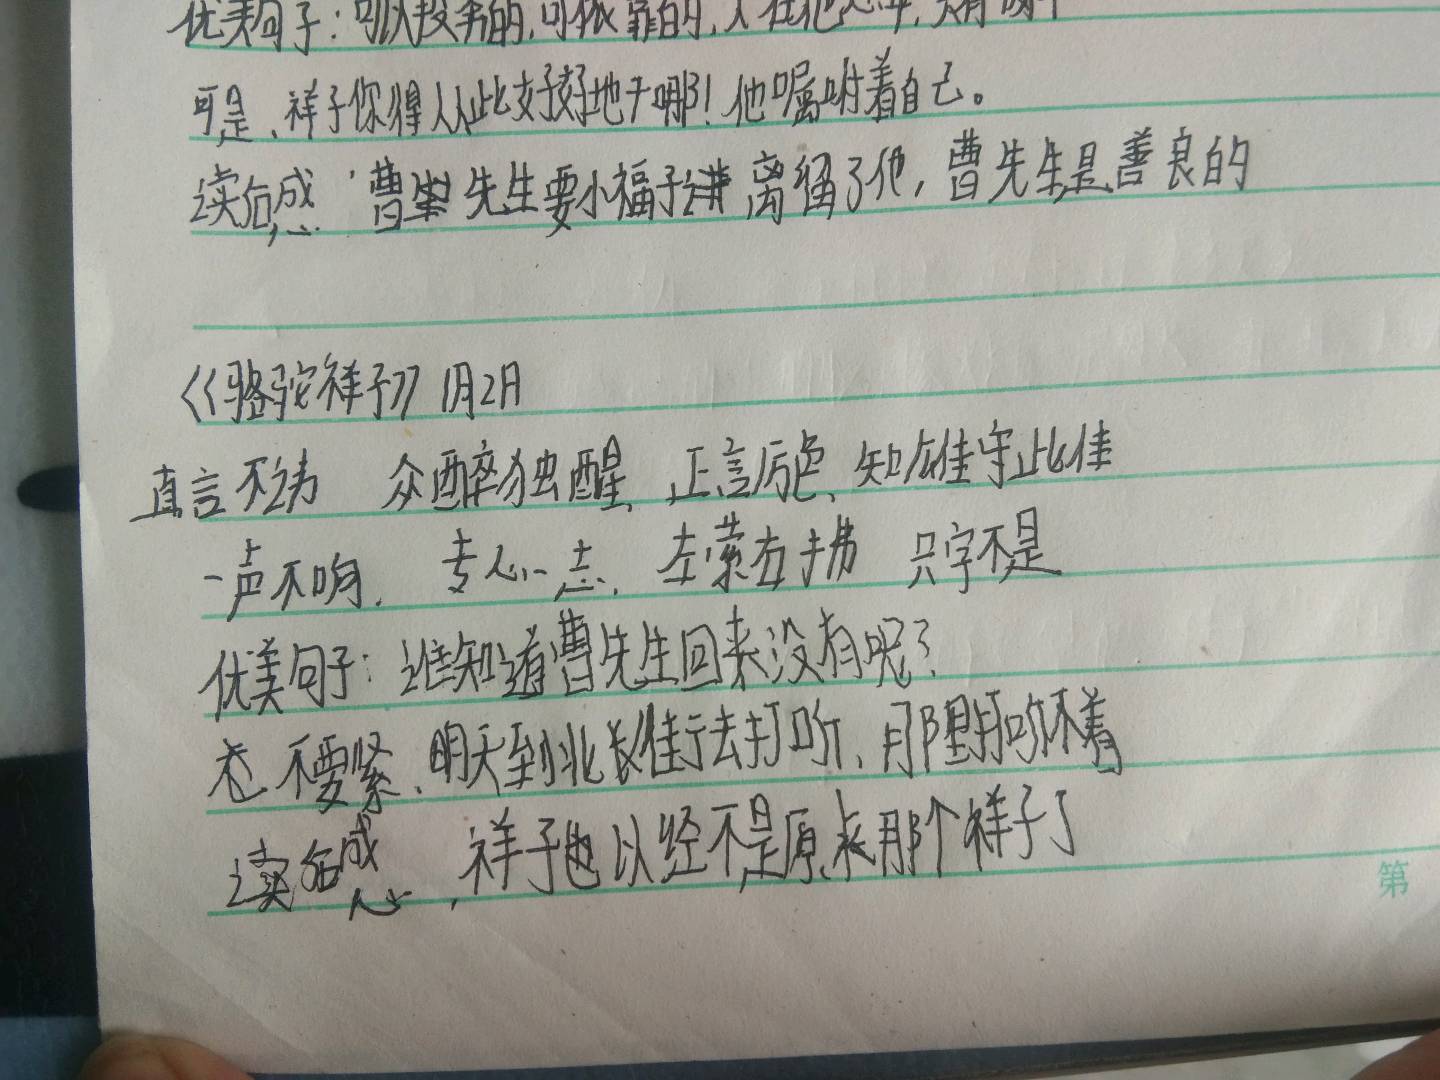 优美句子：可以投奔的，可依靠的，人在他心中，只有两个
可是、祥子你得从此好好地干哪！他嘱咐着自己。
读后感 曹 先生要小福子 离 了他，曹先生是善良的
《骆驼祥子》1月2月
直言不讳 众醉独醒、正言厉色、知雄守此佳
一声不响、 专心一志、 左萦右拂 只字不是
优美句子：谁知道曹先生回来没有呢？
不要紧、明天到北长街去打听、那里打听不着
读后感，祥子也以经不是原来那个祥子了
第